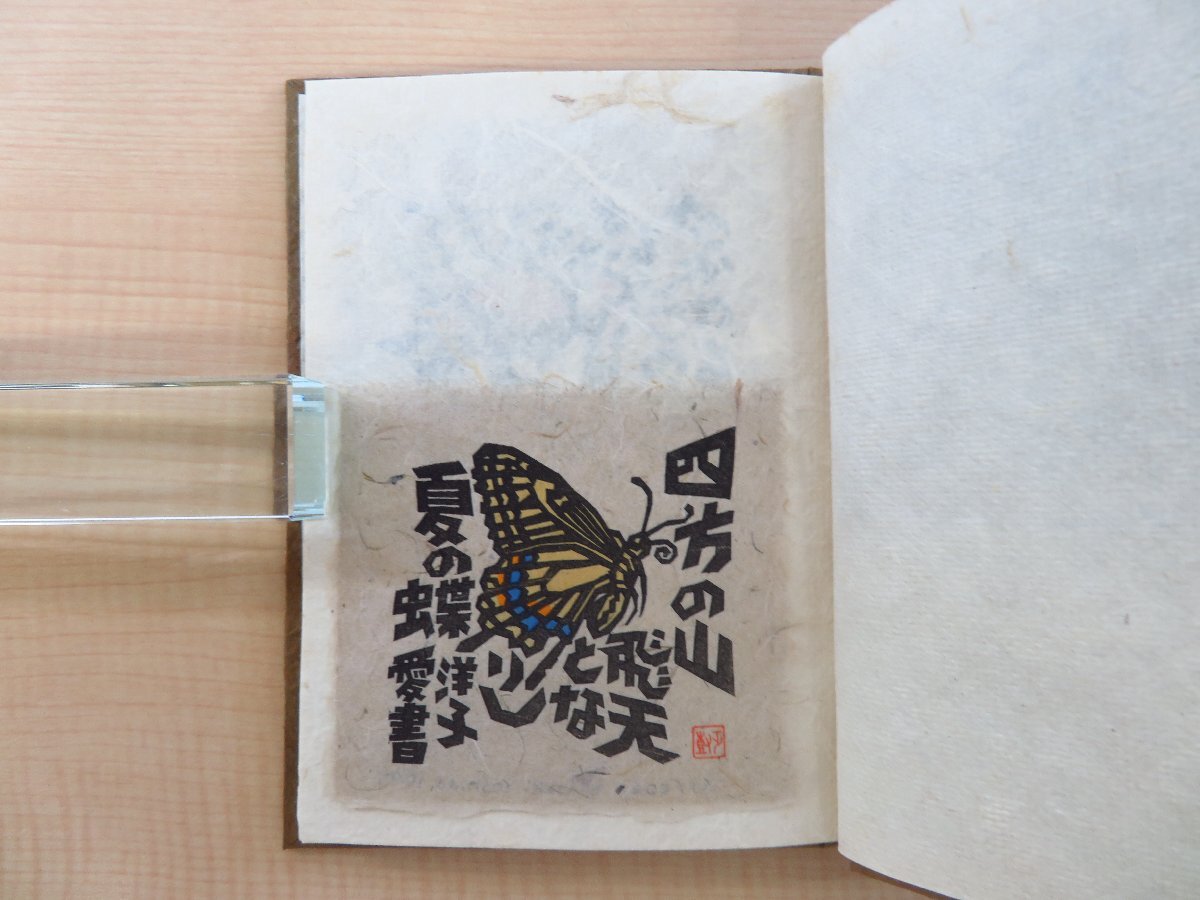 四方の山
飛天
とな
りし
夏の蝶
洋子
虫
愛書